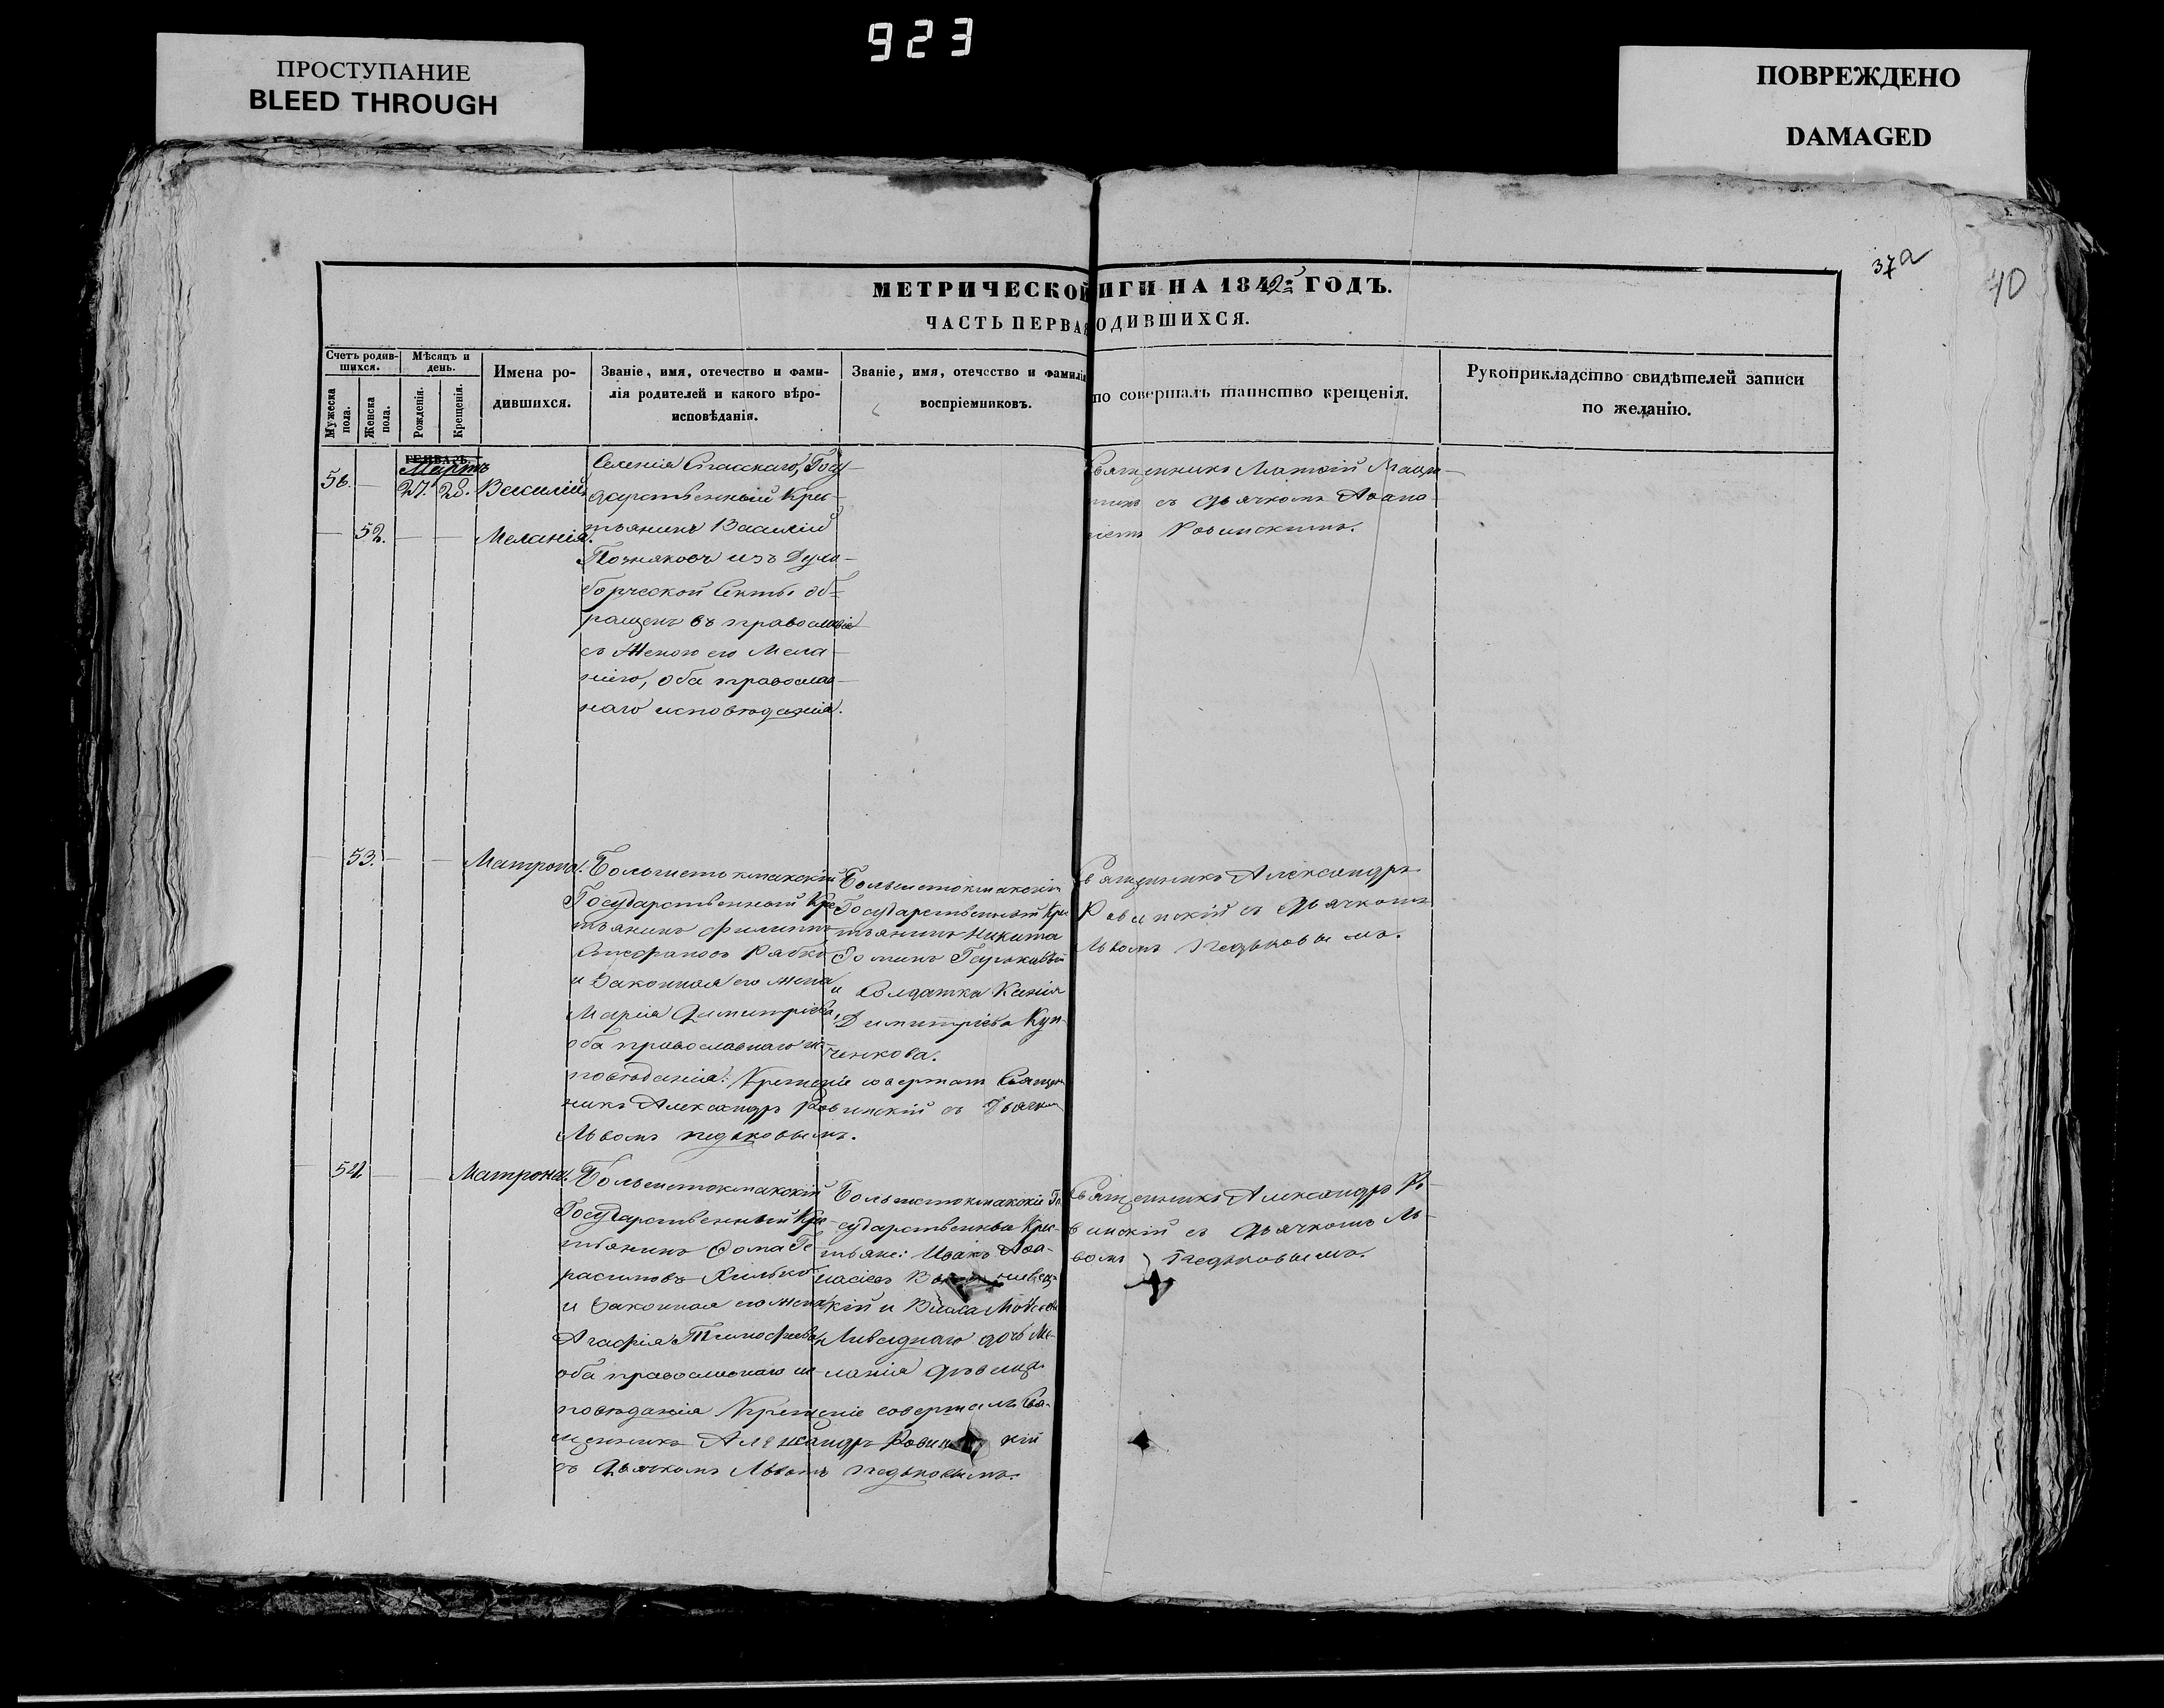 923
ПРОСТУПАНИЕ
BLEED THROUGH
ПОВРЕЖДЕНО
DAMAGED
37а
40
МЕТРИЧЕСКОЙ ИГИ НА 1842 ГОДЪ.
ЧАСТЬ ПЕРВАЯ ОДИВШИХСЯ.
Счетъ родив-
шихся.
Мужеска
пола.
Женска
пола.
Мѣсяцъ и
день.
Рожденія.
Крещенія.
Имена ро-
дившихся.
Званіе, имя, отечество и фами-
лія родителей и какого вѣро-
исповѣданія.
Званіе, имя, отечество и фамилія
воспріемниковъ.
то совершалъ таинство крещенія.
Рукоприкладство свидѣтелей записи
по желанію.
ГЕНВАРЬ.
Мартъ
56. 27. 28. Василій.
52. Меланія.
Селенія Спасскаго, Госу-
дарственный Крес-
тьянинъ Василій
Позняковъ изъ Духо-
борческой Секты об-
ращенъ въ православіе
съ Женою его Мела-
ніею, оба православ-
наго исповѣданія.
Священникъ Матѳій
съ Дьячкомъ Аѳана-
сіемъ Ровинскимъ.
53. Матрона.
Большетокмакскій
Государственный Кре-
стьянинъ Филиппъ
Стефановъ Рябко
и Законная его жена
Марія Димитріева,
оба православнаго ис-
повѣданія. Крещеніе совершалъ Священ-
никъ Александръ Ровинскій съ Дьячкомъ
Львомъ
Большетокмакскій
Государственный Кре-
стьянинъ Никита
и Солдатка
Димитріева Куц-
ченкова.
Священникъ Александръ
Ровинскій съ Дьячкомъ
Львомъ
54. Матрона.
Большетокмакскій
Государственный Кре-
стьянинъ Ѳома Ге-
расимовъ
и Законная его жена
Агафія Тимофеева,
оба православнаго ис-
повѣданія Крещеніе совершалъ Свя-
щенникъ Александръ Ровинскій
съ Дьячкомъ Львомъ
Большетокмакскіе Го-
сударственные Крес-
тьяне: Исакъ Аѳа-
насіевъ
кій и Власа
дочь Ме-
ланія дѣвица
Священникъ Александръ Ро-
винскій съ Дьячкомъ Ль-
вомъ